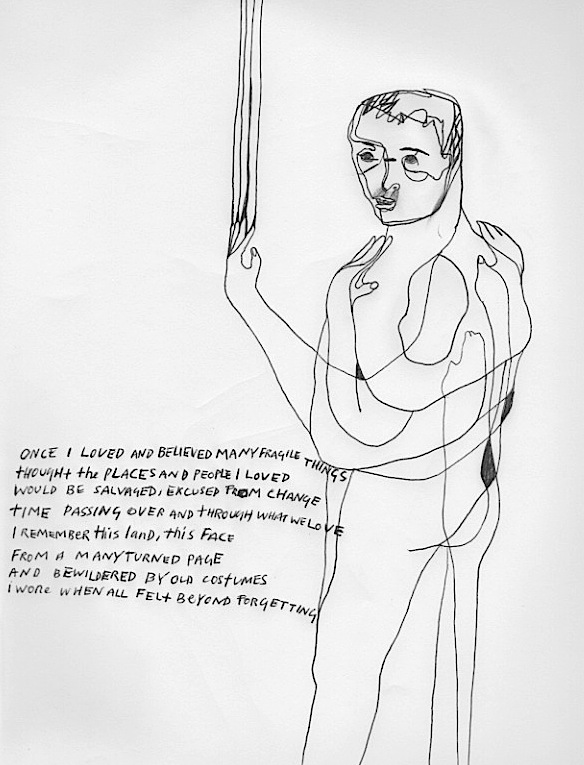 ONCE I LOVED AND BELIEVED MANY FRAGILE THINGS
THOUGHT the PLACES AND PEOPLE I LOVED
WOULD BE SALVAGED, EXCUSED FROM CHANGE
TIME PASSING OVER AND THROUGH WHAT WE LOVE
I REMEMBER this land, this FACE
FROM A MANY TURNED PAGE
AND BEWILDERED BY OLD COSTUMES
I WORE WHEN ALL FELT BEYOND FORGETTING